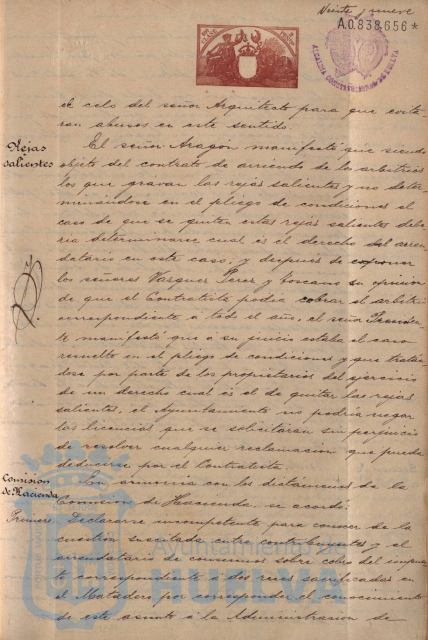 Veinte y nueve
A.0.838,656*
ALCALDIA CONSTITUCIONAL DE HUELVA
el celo del señor Arquitecto para que evita-
ran abusos en este sentido.
Rejas
salientes
El señor Aragon manifestó que siendo
objeto del contrato de arriendo de los arbitrios
los que gravan las rejas salientes y no deter-
minándose en el pliego de condiciones el
caso de que se quiten estas rejas salientes debe-
ria determinarse cual es el derecho del arren-
datario en este caso; y despues de exponer
los señores Vazquez Perez y Toscano su opinion
de que el Contratista podia cobrar el arbitrio
correspondiente á todo el año, el señor Presiden-
te manifestó que á su juicio estaba el caso
resuelto en el pliego de condiciones y que tratan-
dose por parte de los propietarios del ejercicio
de un derecho cual es el de quitar las rejas
salientes, el Ayuntamiento no podria negar
las licencias que se solicitaran sin perjuicio
de resolver cualquier reclamacion que pueda
deducirse por el Contratista.
Comision
de Hacienda
En armonia con los dictámenes de la
Comision de Hacienda se acordó:
Primero. Declararse incompetente para conocer de la
cuestion suscitada entre contribuyentes y el
arrendatario de consumos sobre cobro del impues-
to correspondiente á dos reses sacrificadas en
el Matadero, por corresponder el conocimiento
de este asunto á la Administracion de
Ayuntamiento de
HUELVA